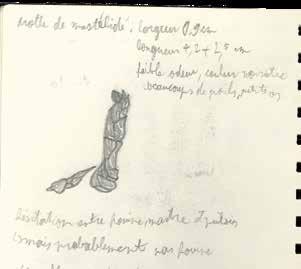 crotte de mustélidé : longueur 0,9 cm
longueur 4,2 + 2,5 cm
faible odeur, couleur noirâtre
beaucoup de poils, petits os
hésitation entre fouine, martre et putois
mais probablement pas fouine